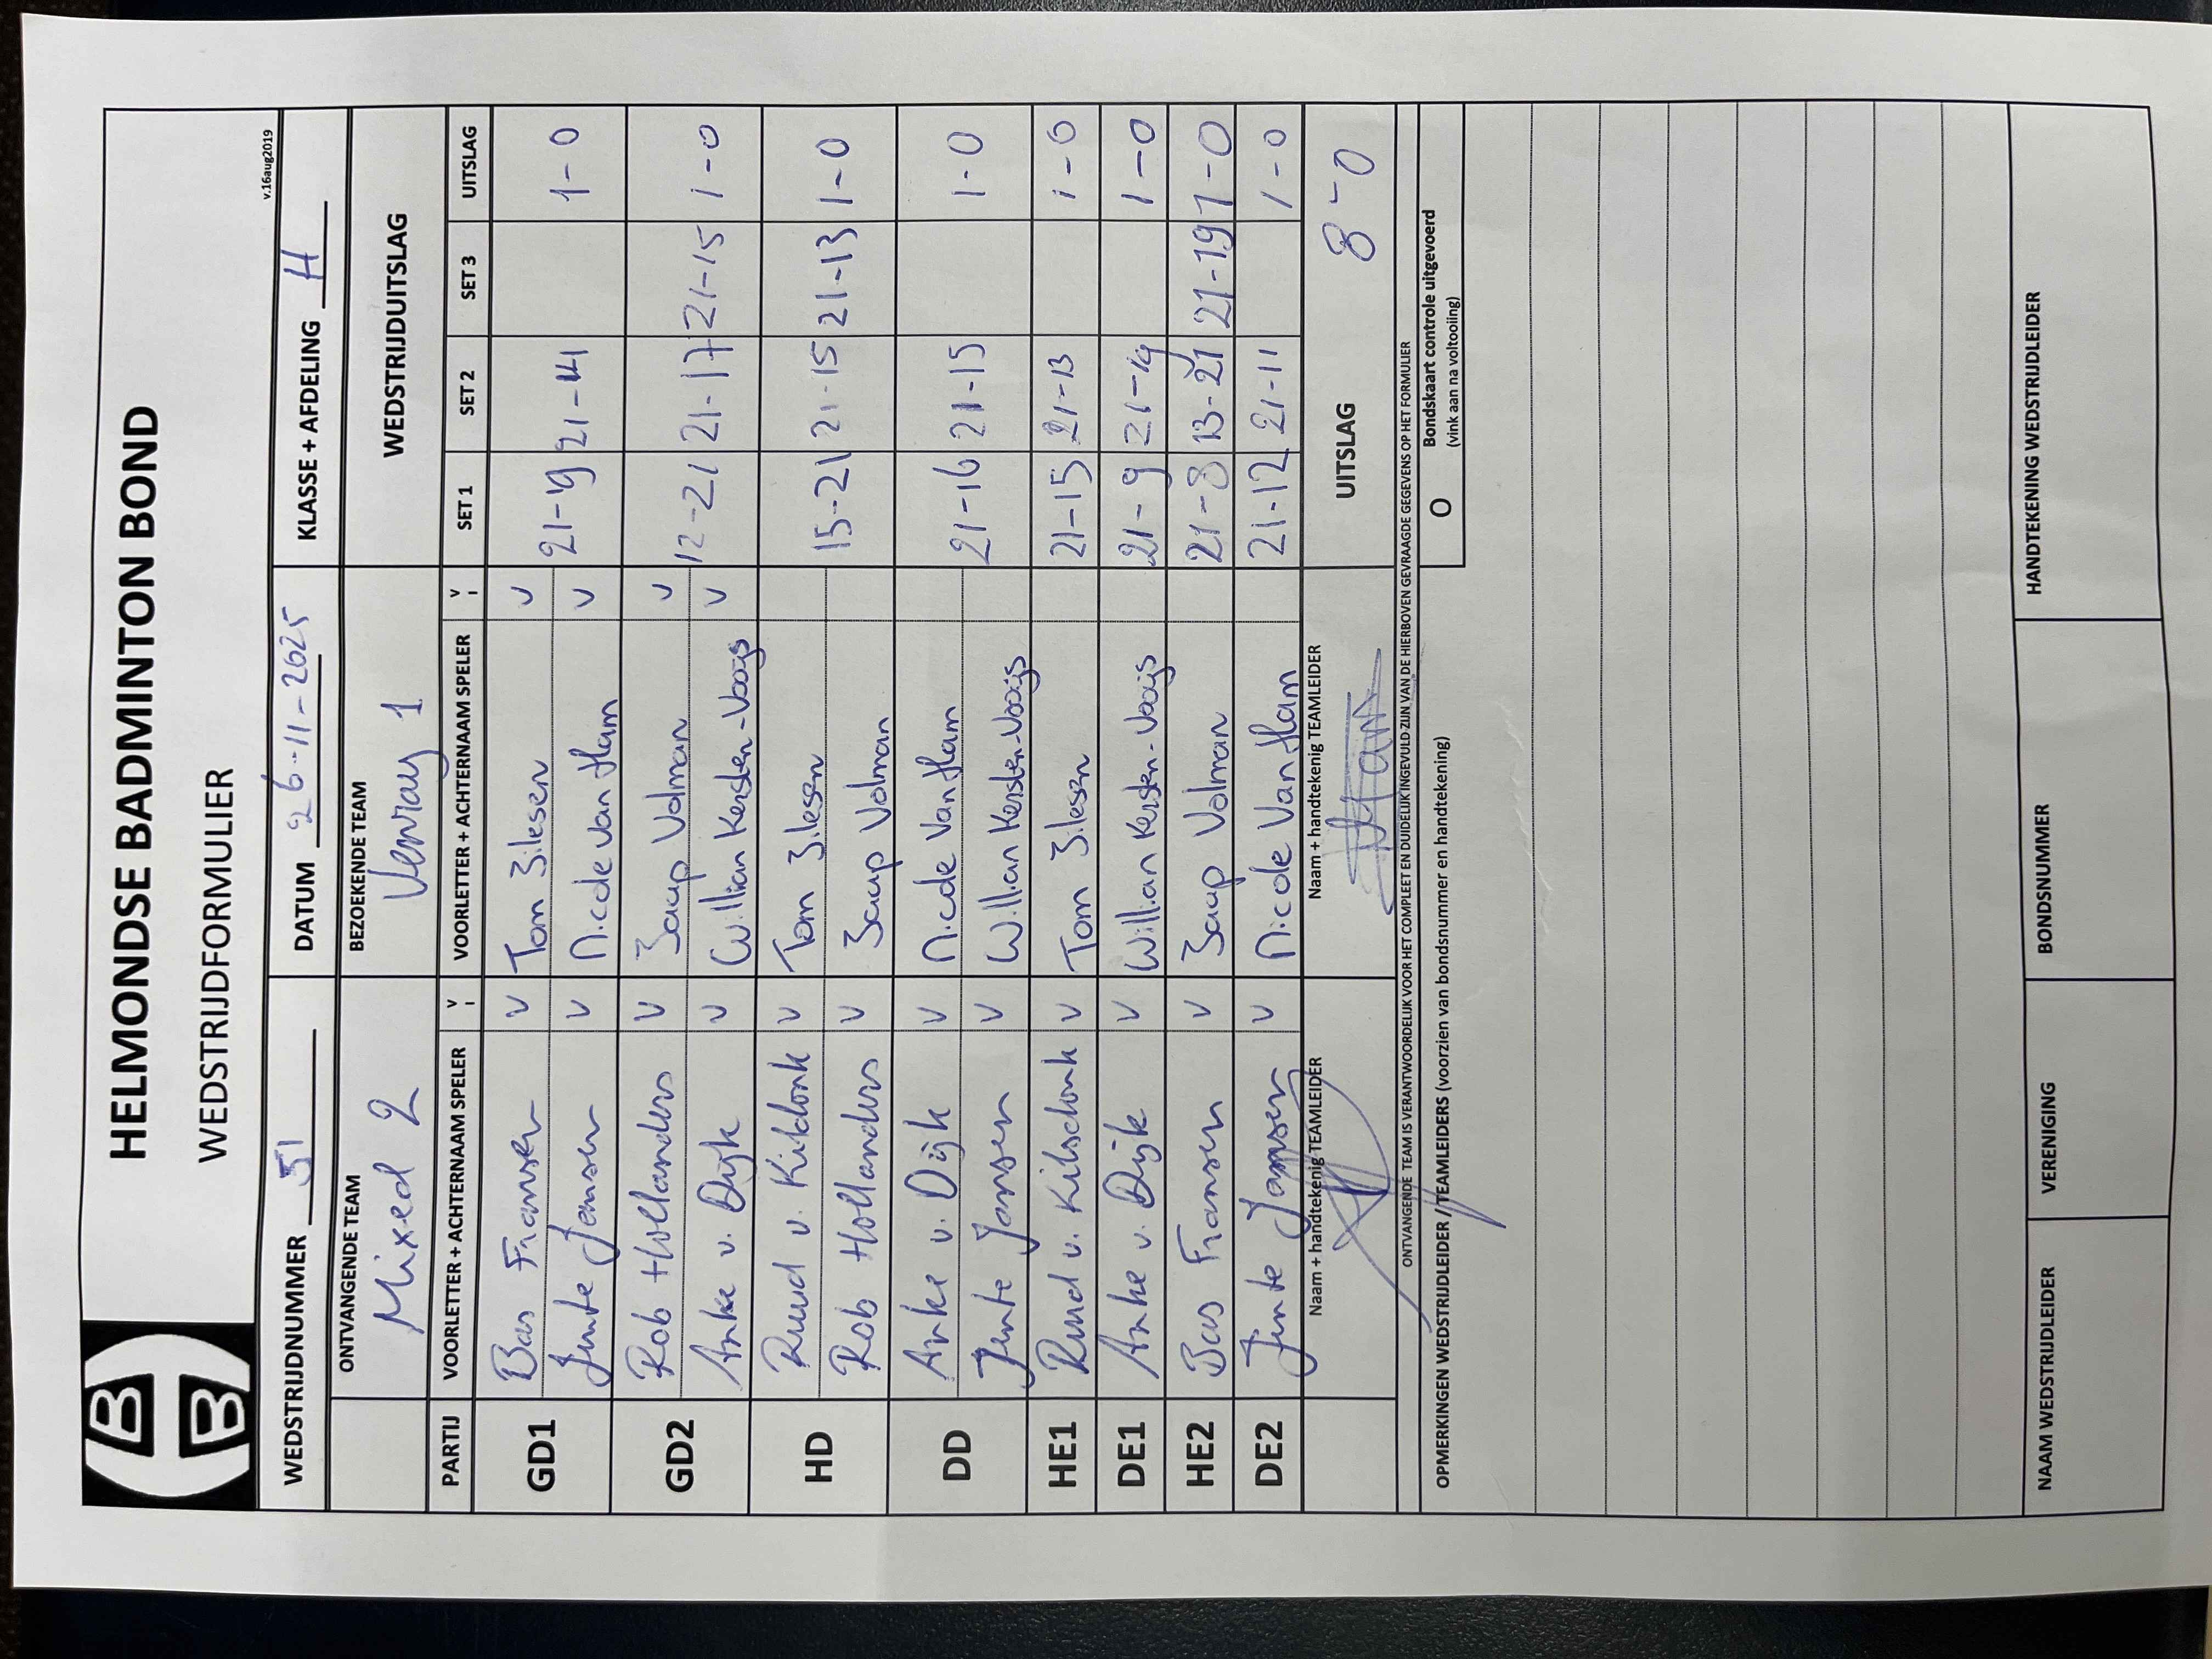 HELMONDSE BADMINTON BOND
WEDSTRIJDFORMULIER
v.16aug2019
WEDSTRIJDNUMMER 51 DATUM 26-11-2025 KLASSE + AFDELING H
ONTVANGENDE TEAM BEZOEKENDE TEAM WEDSTRIJDUITSLAG
Mixed 2 Venray 1
PARTIJ VOORLETTER + ACHTERNAAM SPELER V VOORLETTER + ACHTERNAAM SPELER V SET 1 SET 2 SET 3 UITSLAG
GD1 Bas Fransen V Tom Jilesen V
Jente Jansen V Nicole Van Ham V 21-9 21-14 1-0
GD2 Rob Hollanders V Jaap Volman V
Anke v. Dijk V Willian Kersten-Vooijs V 12-21 21-17 21-15 1-0
HD Ruud v. Kilsdonk V Tom Jilesen
Rob Hollanders V Jaap Volman 15-21 21-15 21-13 1-0
DD Anke v. Dijk V Nicole Van Ham
Jente Jansen V Willian Kersten-Vooijs 21-16 21-15 1-0
HE1 Ruud v. Kilsdonk V Tom Jilesen 21-15 21-13 1-0
DE1 Anke v. Dijk V Willian Kersten-Vooijs 21-9 21-14 1-0
HE2 Bas Fransen V Jaap Volman 21-8 13-21 21-19 1-0
DE2 Jente Jansen V Nicole Van Ham 21-12 21-11 1-0
Naam + handtekenig TEAMLEIDER Naam + handtekenig TEAMLEIDER UITSLAG 8-0
ONTVANGENDE TEAM IS VERANTWOORDELIJK VOOR HET COMPLEET EN DUIDELIJK INGEVULD ZIJN VAN DE HIERBOVEN GEVRAAGDE GEGEVENS OP HET FORMULIER
OPMERKINGEN WEDSTRIJDLEIDER /TEAMLEIDERS (voorzien van bondsnummer en handtekening) O Bondskaart controle uitgevoerd
(vink aan na voltooiing)
NAAM WEDSTRIJDLEIDER VERENIGING BONDSNUMMER HANDTEKENING WEDSTRIJDLEIDER